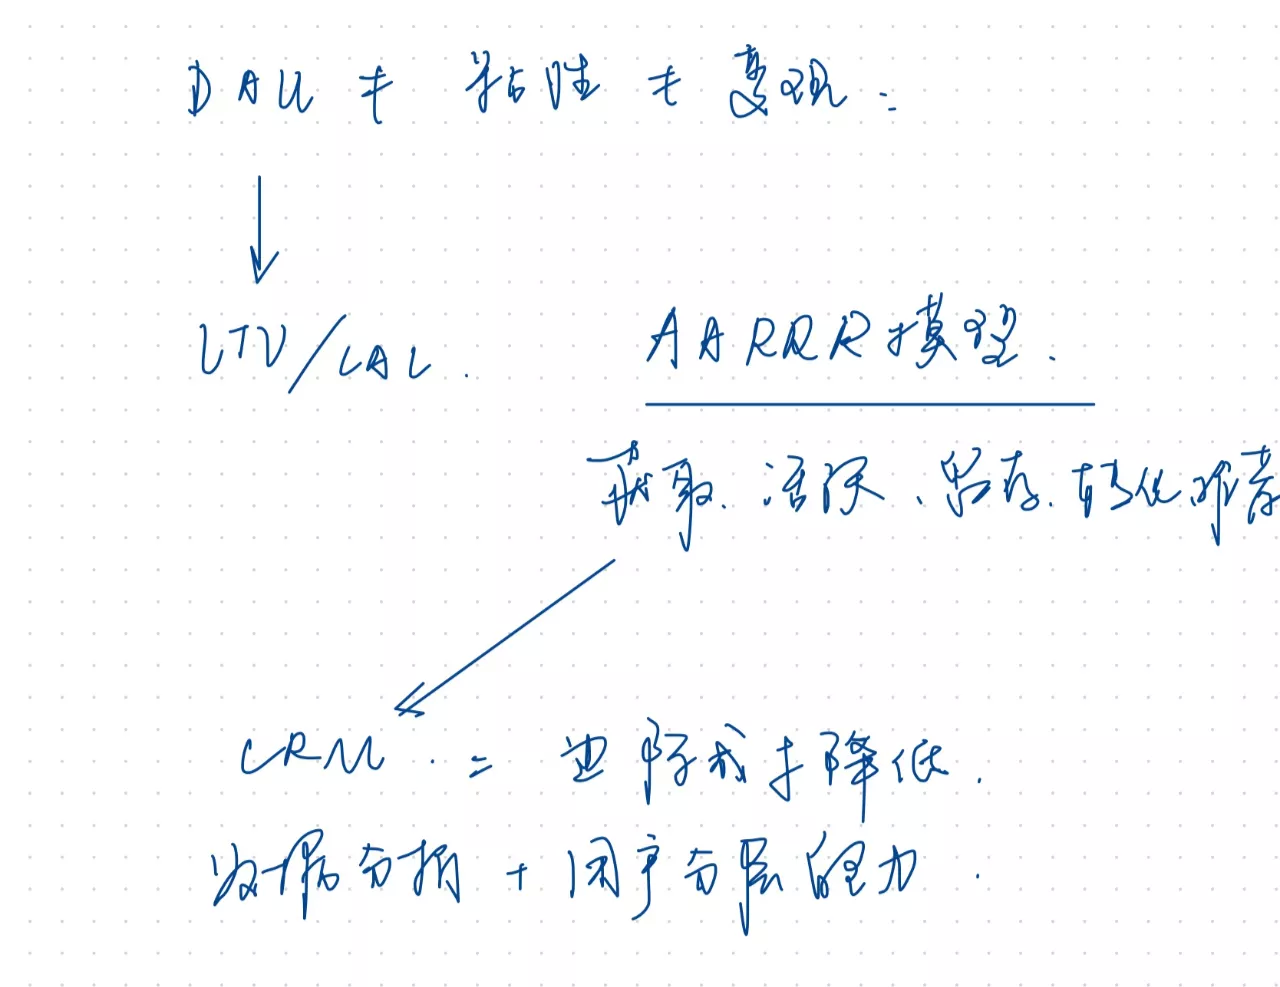 DAU + 粘性 + 变现 =
LTV/CAC.
AARRR模型.
获取、活跃、留存、转化、推荐
CRM. = 边际成本降低.
数据分析 + 用户分层能力.